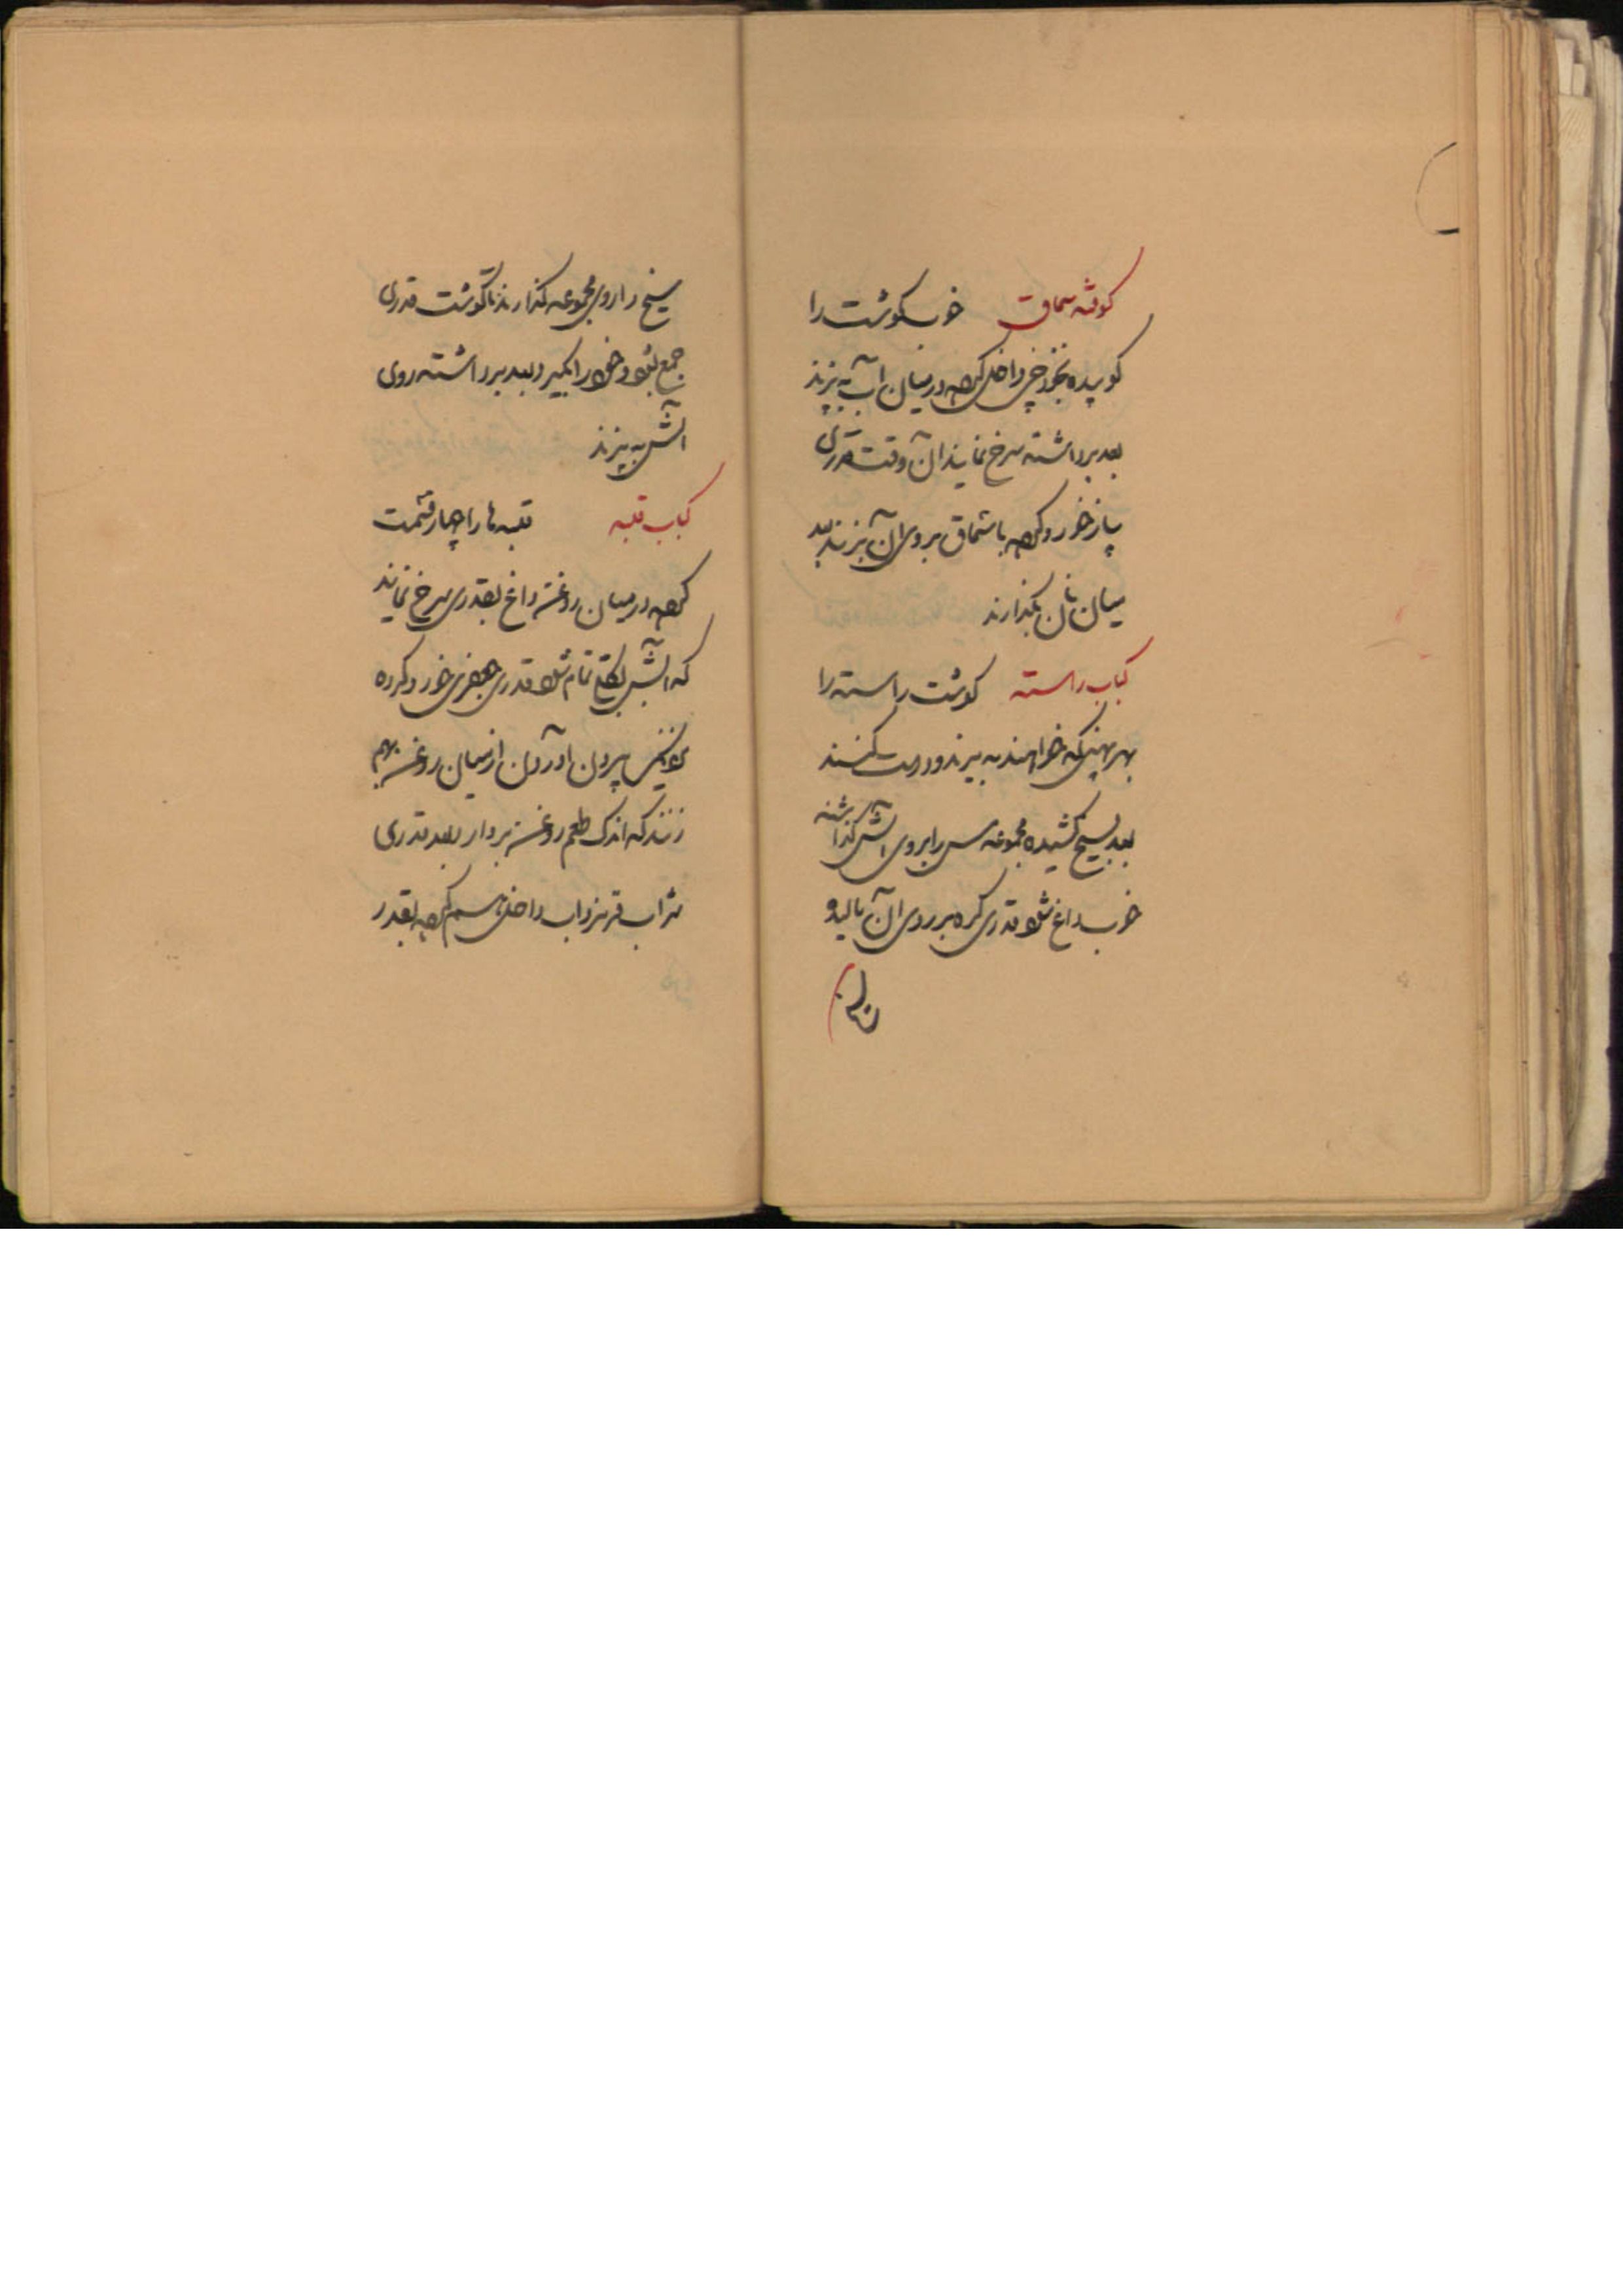 کوفته سماق خوب گوشت را
کوبیده نخودچی داخل کرده در میان آب به پزند
بعد برداشته سرخ نمایند آن وقت قدری
پیاز خورد کرده با سماق بروی آن بزنند بعد
میان نان بگذارند
کباب راسته گوشت راسته را
بهر پهنی که خواهند به برند و درست کنند
بعد بسیخ کشیده مجموعه مس را بروی آتش گذاشته
خوب داغ شود قدری کره بر روی آن مالید و
سیخ را روی مجموعه گذارند تا گوشت قدری
جمع بشود و خود را بگیرد بعد برداشته روی
آتش به پزند
کباب قلبه قلبه ها را چهار قسمت
کرده در میان روغن داغ بقدری سرخ نمایند
که آبش تمام شود قدری جعفری خورد کرده
بیرون آوردن از میان روغن بهم
زنند که اندک طعم روغن بردارد بعد قدری
شراب قرمز و آب داخل هم کرده بقدر